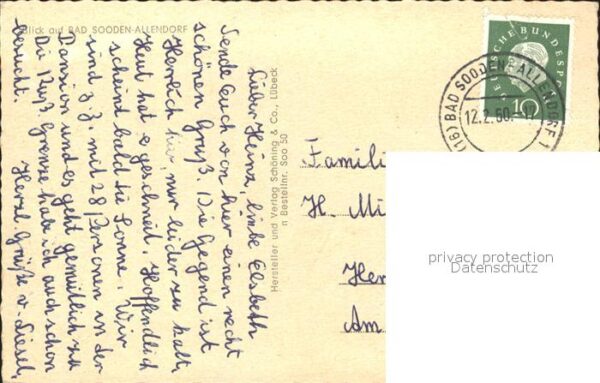 Blick auf BAD SOODEN-ALLENDORF
Lieber Heinz, liebe Elsbeth
Sende Euch von hier einen recht
schönen Gruß. Die Gegend ist
Herrlich hier, nur leider zu kalt,
Heut hat es geschneit. Hoffendlich
scheind bald die Sonne. Wir
sind z. Z. mit 28 Personen in der
Pansion und es geht gemütlich zu
Die Russ. Grenze habe ich auch schon
besucht. Herzl. Grüße v. Liesel,
Hersteller und Verlag Schöning & Co., Lübeck
Bestellnr. Soo 50
DEUTSCHE BUNDESPOST
10
(16) BAD SOODEN-ALLENDORF 1
12.2.60.-17
Famili
H. Mi
Her
Am
privacy protection
Datenschutz